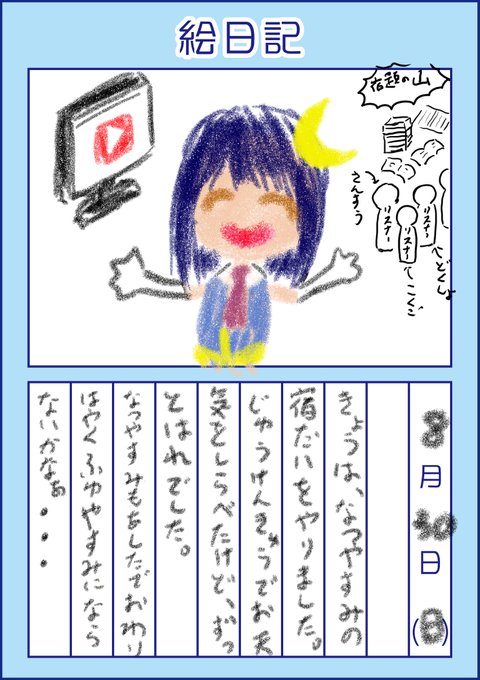 絵日記
宿題の山
さんすう
リスナー
リスナー
リスナー
どくしょ
こくご
8月30日(日)
きょうは、なつやすみの
宿だいをやりました。
じゆうけんきゅうでお天
気をしらべたけど、ずっ
とはれでした。
なつやすみもあしたでおわり
はやくふゆやすみになら
ないかなぁ・・・